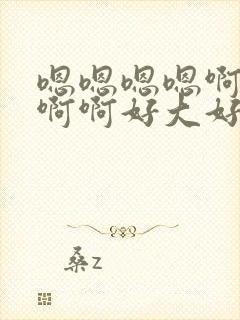 嗯嗯嗯嗯啊
啊啊好大好
桑z